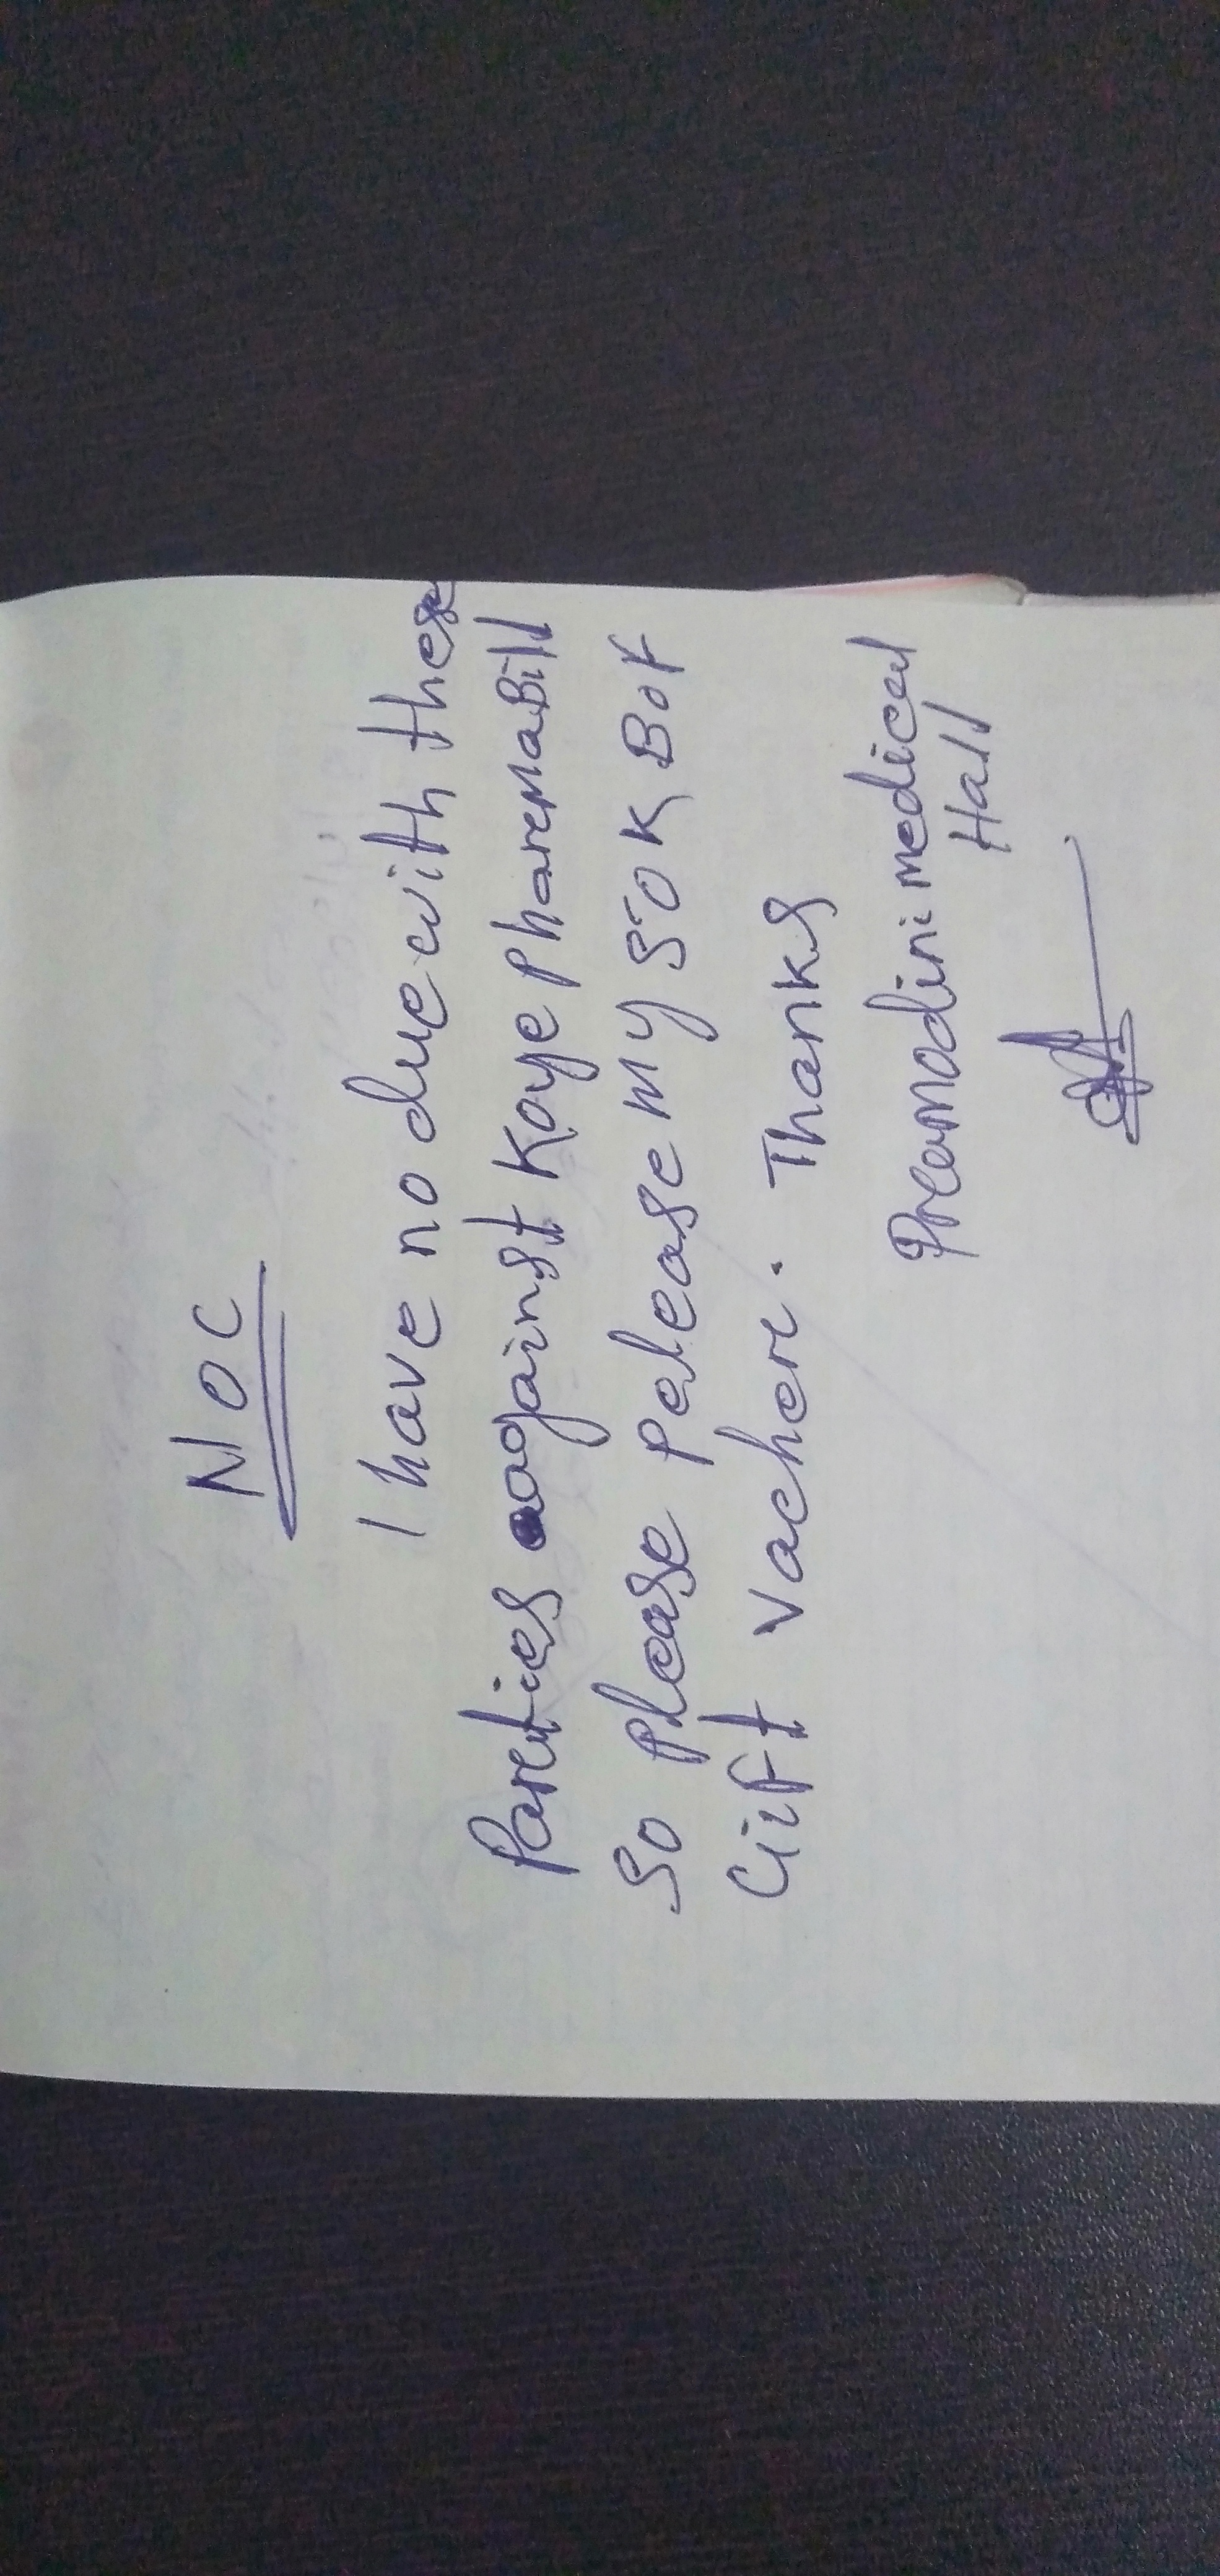 NOC
I have no due with these
Parties against Koye pharma Bill
So please Pelease my 50K Box
Gift Vacher. Thanks
Pramodini medical
Hall